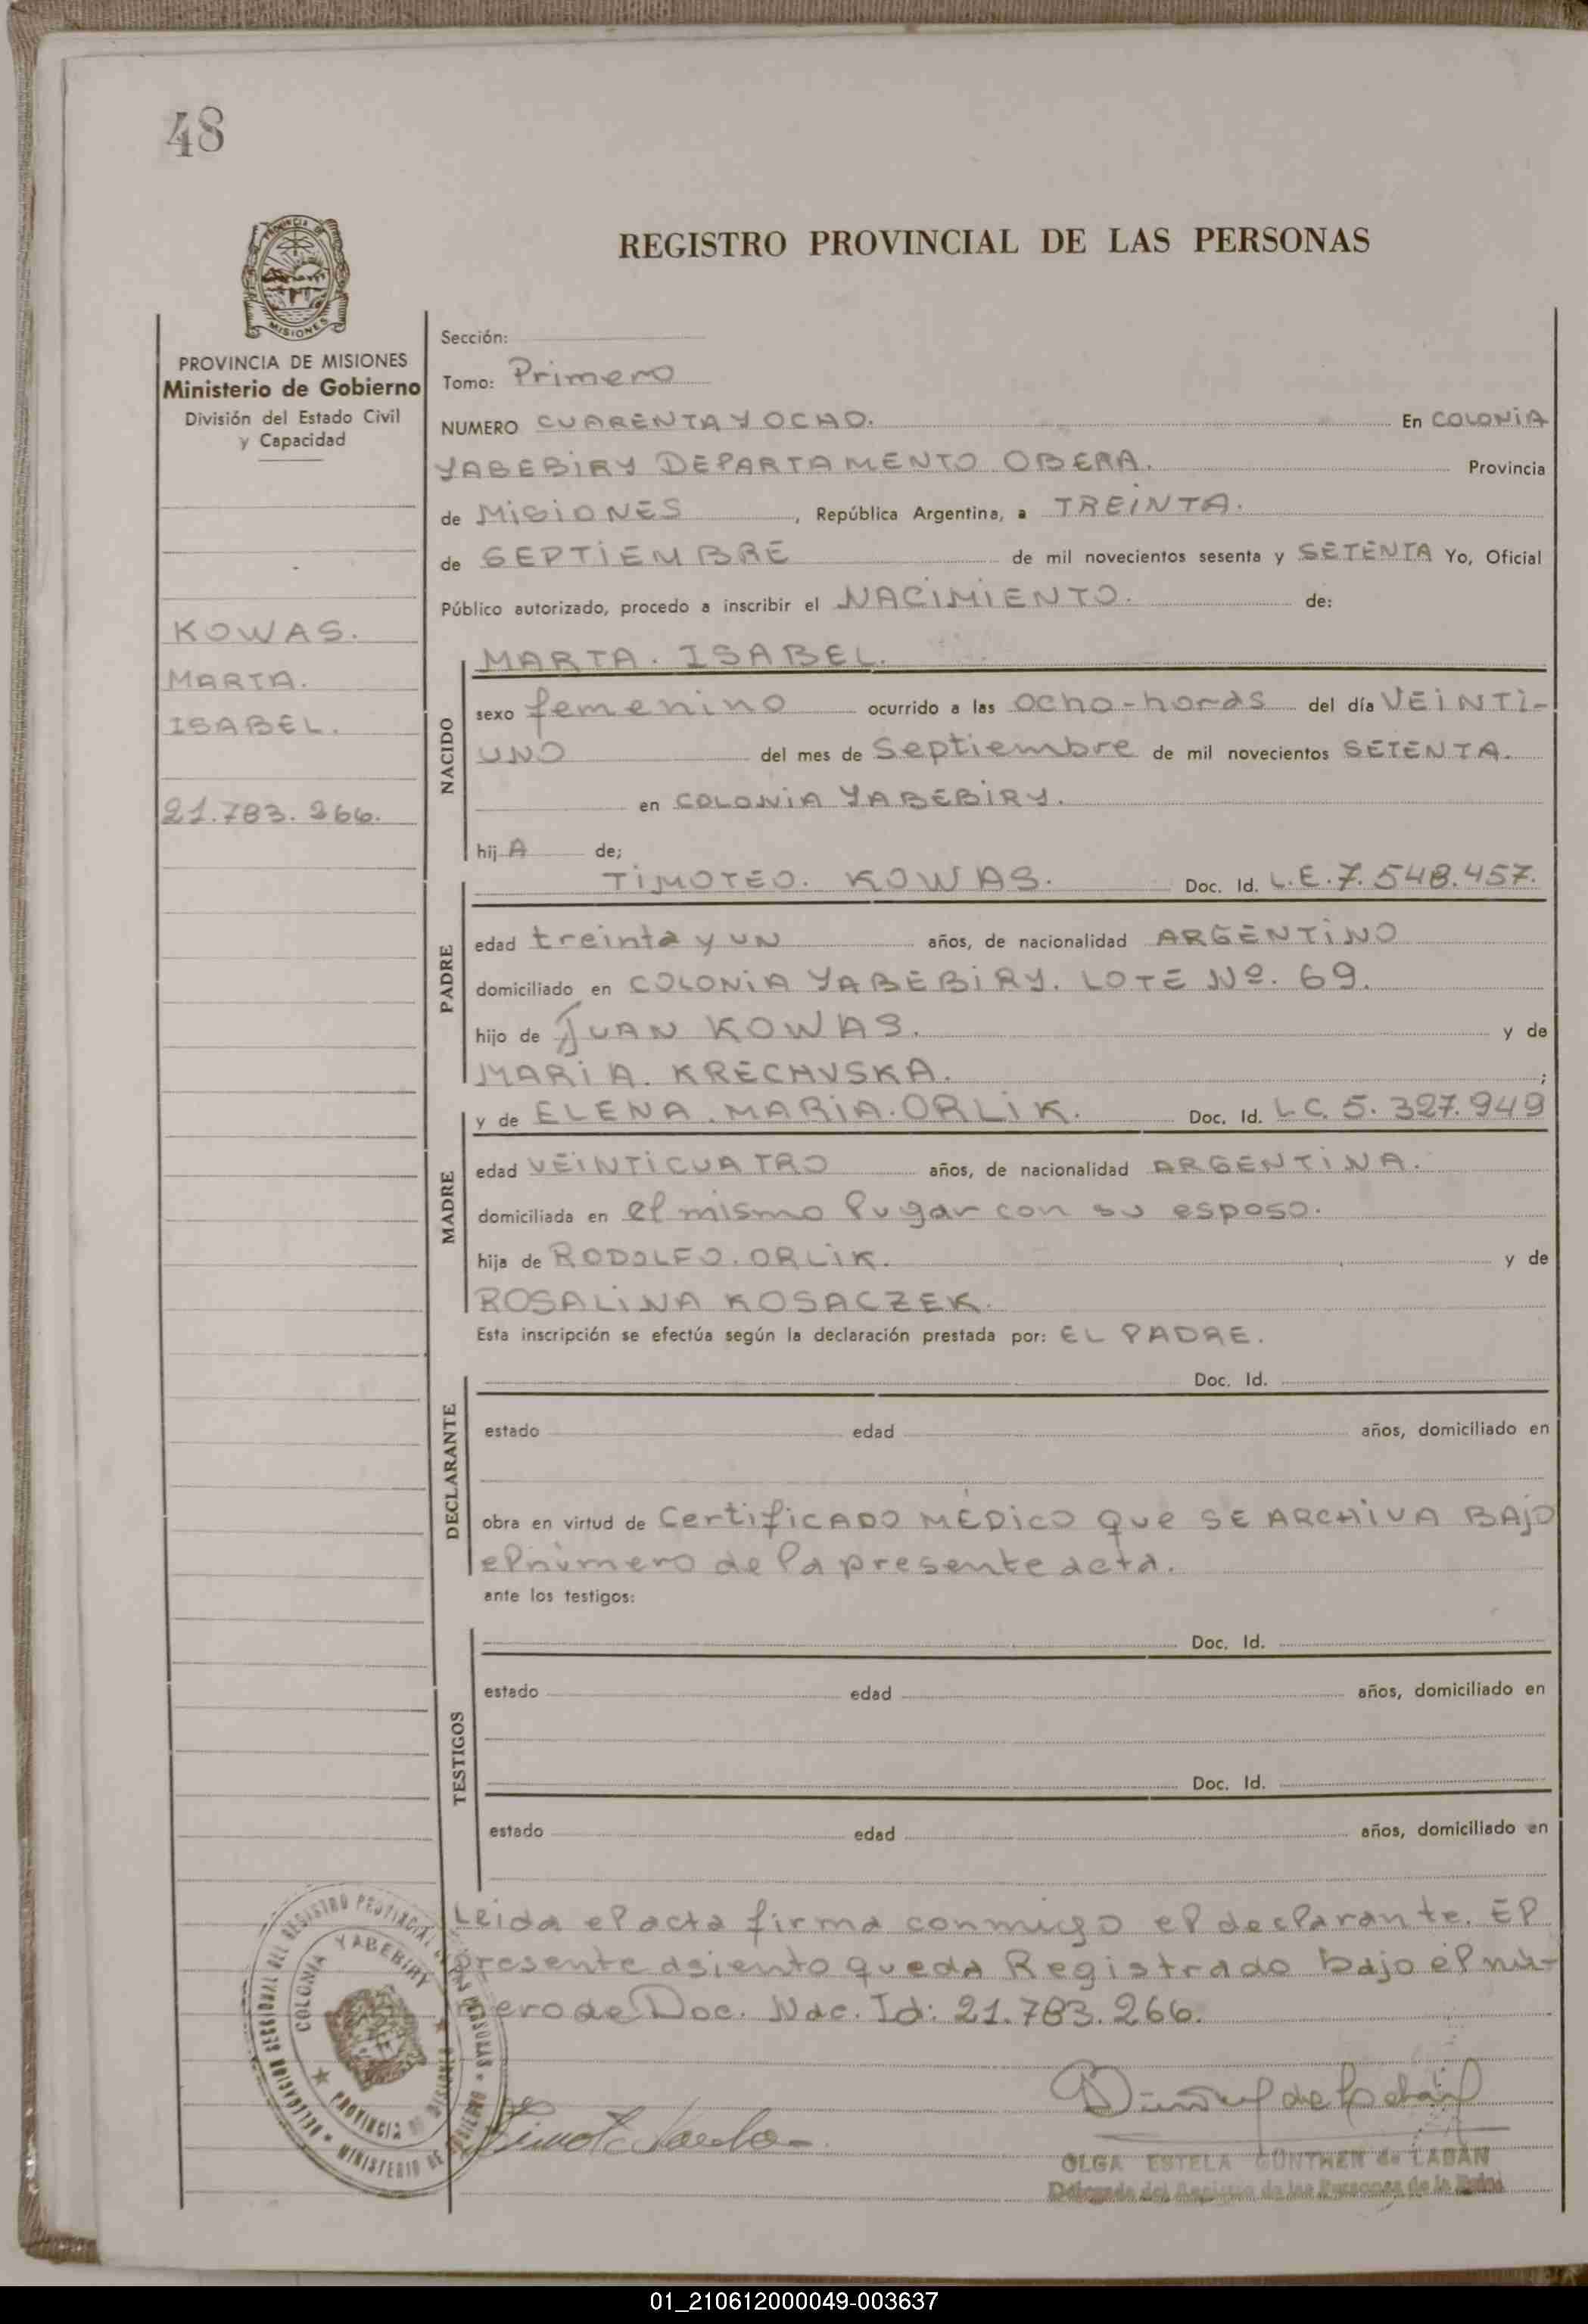 48
REGISTRO PROVINCIAL DE LAS PERSONAS
PROVINCIA DE MISIONES
Ministerio de Gobierno
División del Estado Civil
y Capacidad
KOWAS.
MARTA.
ISABEL.
21.783.266.
Sección:
Tomo: Primero
NUMERO CUARENTA Y OCHO. En COLONIA
YABEBIRY DEPARTAMENTO OBERA. Provincia
de MISIONES, República Argentina, a TREINTA.
de SEPTIEMBRE de mil novecientos sesenta y SETENTA Yo, Oficial
Público autorizado, procedo a inscribir el NACIMIENTO. de:
NACIDO
MARTA. ISABEL.
sexo femenino ocurrido a las ocho-horas del día VEINTI-
UNO del mes de Septiembre de mil novecientos SETENTA.
en COLONIA YABEBIRY.
hij A de;
PADRE
TIMOTEO. KOWAS. Doc. Id. L.E. 7.548.457.
edad treinta y un años, de nacionalidad ARGENTINO
domiciliado en COLONIA YABEBIRY. LOTE Nº. 69.
hijo de JUAN KOWAS. y de
MARIA. KRECHUSKA. ;
MADRE
y de ELENA. MARIA. ORLIK. Doc. Id. L.C. 5.327.949
edad VEINTICUATRO años, de nacionalidad ARGENTINA.
domiciliada en el mismo lugar con su esposo.
hija de RODOLFO. ORLIK. y de
ROSALINA KOSACZEK.
Esta inscripción se efectúa según la declaración prestada por: EL PADRE.
DECLARANTE
Doc. Id.
estado edad años, domiciliado en
obra en virtud de Certificado MEDICO que SE ARCHIVA BAJO
el número de la presente acta.
ante los testigos:
TESTIGOS
Doc. Id.
estado edad años, domiciliado en
Doc. Id.
estado edad años, domiciliado en
Leida el acta firma conmigo el declarante. El
presente asiento queda Registrado bajo el nú-
mero de Doc. Nac. Id: 21.783.266.
COLONIA YABEBIRY
PROVINCIA DE MISIONES
OLGA ESTELA GÜNTHER de LABAN
01_210612000049-003637